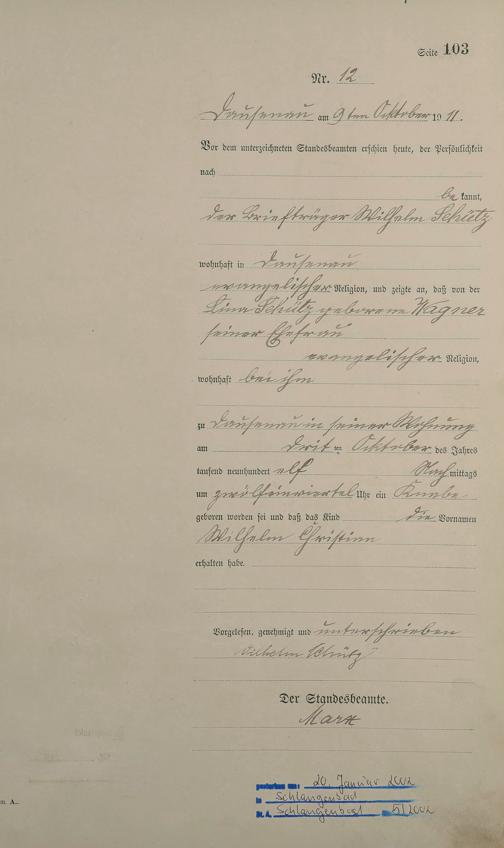 Seite 103
Nr. 12
Dausenau am 9ten Oktober 19 11.
Vor dem unterzeichneten Standesbeamten erschien heute, der Persönlichkeit
nach
be kannt,
der Briefträger Wilhelm Schütz
wohnhaft in Dausenau
evangelischer Religion, und zeigte an, daß von der
Lina Schütz geborene Wagner
seiner Ehefrau
evangelischer Religion,
wohnhaft bei ihm
zu Dausenau in seiner Wohnung
am drit ten Oktober des Jahres
tausend neunhundert elf Nach mittags
um zwölfeinviertel Uhr ein Knabe
geboren worden sei und daß das Kind die Vornamen
Wilhelm Christian
erhalten habe.
Vorgelesen, genehmigt und unterschrieben
Wilhelm Schütz
Der Standesbeamte.
Marx
gestorben am: 20. Januar 2002
in Schlangenbad
St. A. Schlangenbad 5/2002